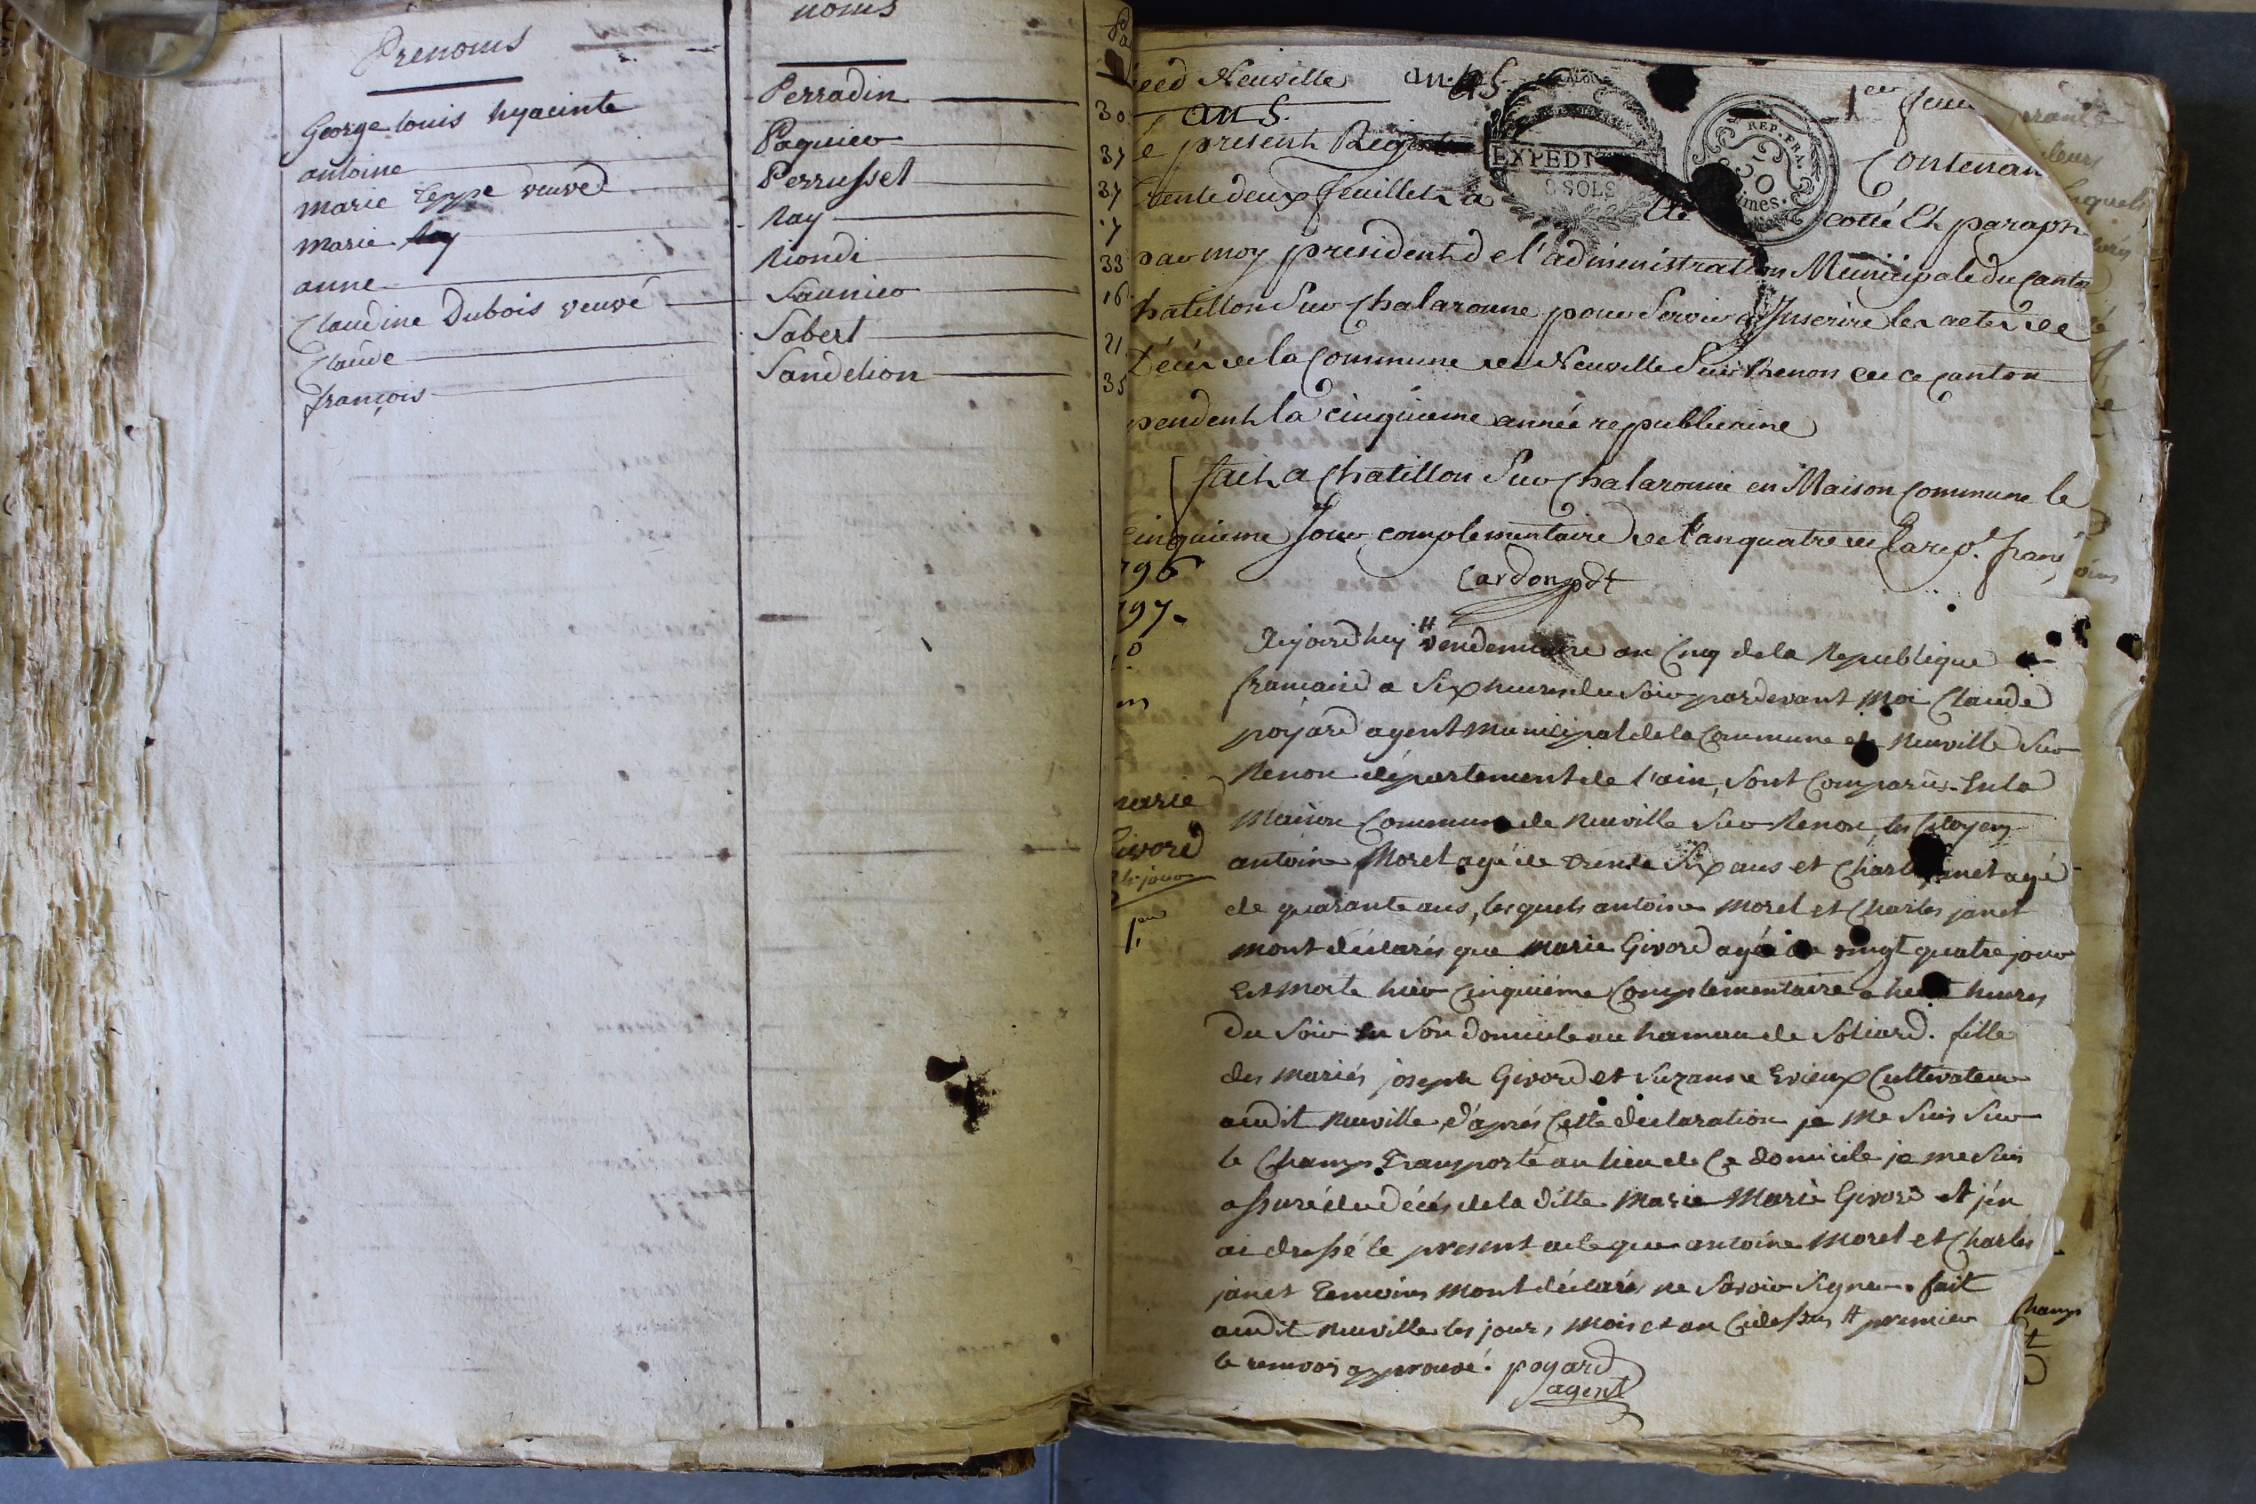 Prenoms
noms
George louis hyacinte Perradin
antoine Paquier
marie Teppe veuve Perrussel
marie Ray
anne Riondi
Claudine Dubois veuve Saunier
Claude Sabert
françois Sandelion
30
37
37
7
33
16
21
35
Neuville an 5
an 5.
1er feui
EXPEDI
8 SOLS
REP. FRA.
50
present Registre Contenan
trente deux feuillets a cotté Et paraph
par moy president de l'administration Municipale du Canton
hatillon Sur Chalaronne pour Servir a Inscrire les actes de
Décès de la Commune de Neuville Sur Renon de ce Canton
pendent la cinquieme année republicaine
fait a Chatillon Sur Chalaronne en Maison Commune le
Cinquieme Jour complementaire de l'an quatre de La rep. franc
Cardon pdt
796
797.
Aujourdhuy # vendemiaire an Cinq de la Republique
francaise a Six heures du Soir pardevant Moi Claude
poyard agent Municipal de la Commune de Neuville Sur
Renon département de l'ain, Sont Comparus En la
Maison Commune de Neuville Sur Renon, les Citoyens
antoine Morel agé de trente Six ans et Charles janet agé
de quarante ans, lesquels antoine Morel et Charles janet
mont déclarés que Marie Givord agée de vingt quatre jour
Est Morte hier Cinquiéme Complementaire a heures
du Soir en Son domicile au hameau de Soliard. fille
des Mariés joseph Givord et Suzanne Evieux Cultivateur
audit Neuville, d'aprés Cette declaration je Me Suis Sur
le Champ Transporté au lieu de Ce domicile je me Suis
assuré du décés de la ditte Marie Marie Givord et j'en
ai dressé le present acte que antoine Morel et Charles
janet temoins Mont déclarés ne Savoir Signer. fait
audit Neuville les jour, Mois et an Cidessus # premier
le renvoi approuvé. poyard
agent
marie
Givord
jour
1er
Champ